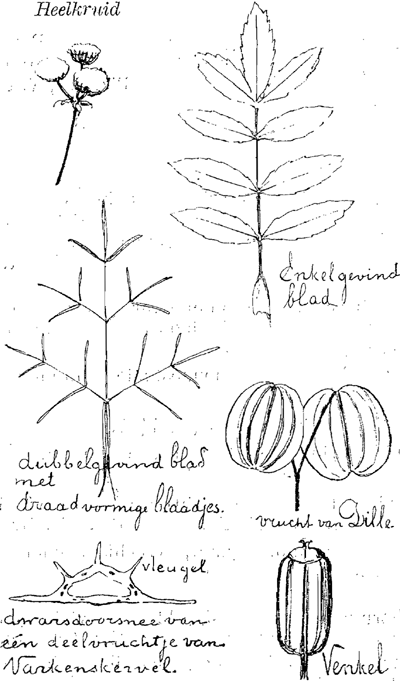 Heelkruid
Enkelgevind
blad
dubbelgevind blad
met
draadvormige blaadjes.
vrucht van Dille
vleugel
dwarsdoorsnee van
één deelvruchtje van
Varkenskervel.
Venkel